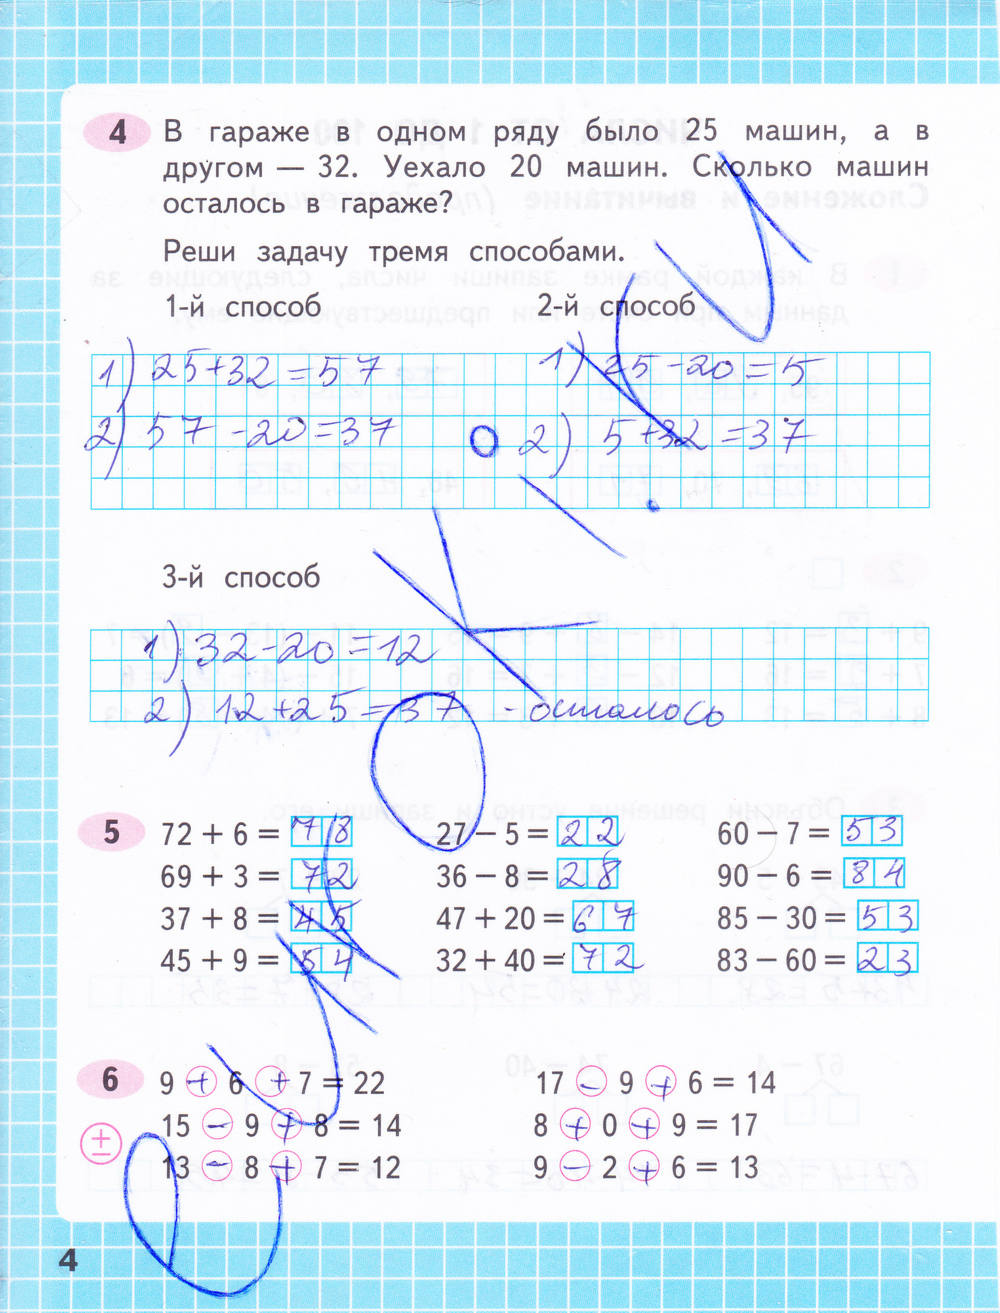 4 В гараже в одном ряду было 25 машин, а в
другом — 32. Уехало 20 машин. Сколько машин
осталось в гараже?
Реши задачу тремя способами.
1-й способ 2-й способ
1) 25+32=57 1) 25-20=5
2) 57-20=37 2) 5+32=37
3-й способ
1) 32-20=12
2) 12+25=37 - осталось
5 72 + 6 = 78 27 − 5 = 22 60 − 7 = 53
69 + 3 = 72 36 − 8 = 28 90 − 6 = 84
37 + 8 = 45 47 + 20 = 67 85 − 30 = 53
45 + 9 = 54 32 + 40 = 72 83 − 60 = 23
6 9 + 6 + 7 = 22 17 - 9 + 6 = 14
± 15 - 9 + 8 = 14 8 + 0 + 9 = 17
13 - 8 + 7 = 12 9 - 2 + 6 = 13
4